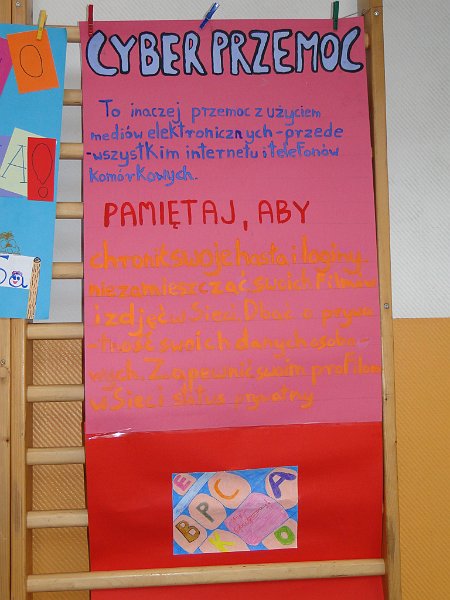 CYBER PRZEMOC
To inaczej przemoc z użyciem
mediów elektronicznych - przede
- wszystkim internetu i telefonów
komórkowych.
PAMIĘTAJ, ABY
chronić swoje hasła i loginy
nie zamieszczać swoich filmów
i zdjęć w Sieci Dbać o prywa
- tność swoich danych osobo
wych. Zapewnić swoim profilom
w Sieci status prywatny
O
A!
E
B P C A
K O